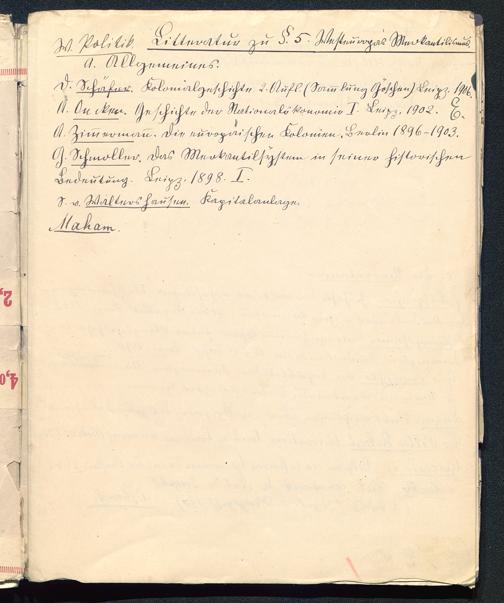 W. Politik. Litteratur zu §. 5. Westeuropas Merkantilismus.
a. Allgemeines.
D. Schäfer. Kolonialgeschichte 2. Aufl. (Sammlung Göschen) Leipz. 1906.
A. Oncken. Geschichte der Nationalökonomie I. Leipz. 1902.
A. Zimmermann. Die europäischen Kolonien. Berlin 1896-1903.
G. Schmoller. Das Merkantilsystem in seiner historischen
Bedeutung. Leipz. 1898. I.
S. v. Waltershausen. Kapitalanlage.
Maham.
2,
4,0